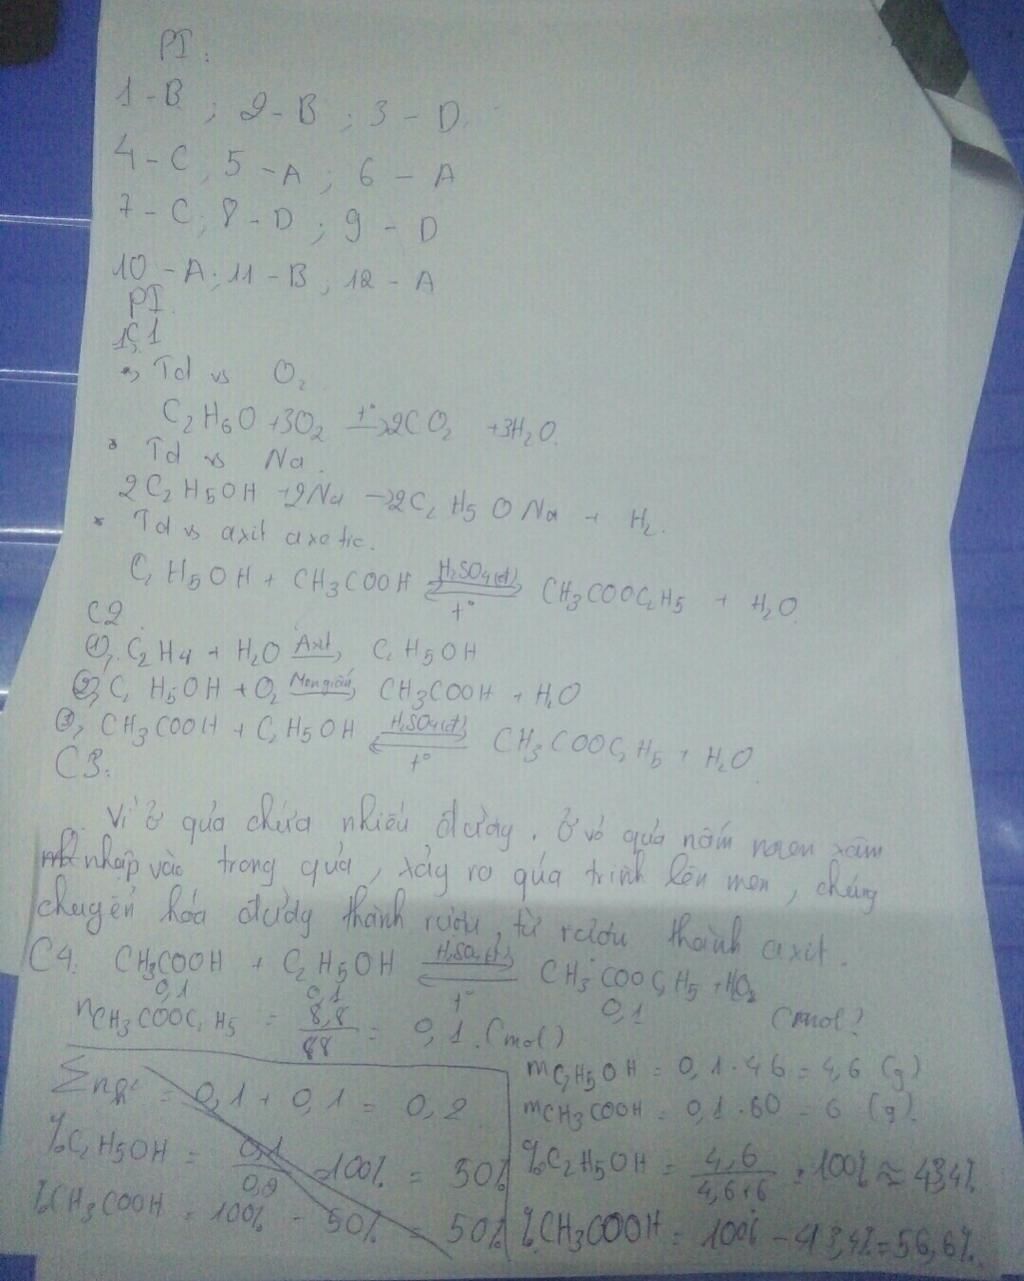 PI:
1-B ; 2-B ; 3-D.
4-C, 5-A ; 6-A
7-C; 8-D ; 9-D
10-A; 11-B ; 12-A
PI.
C1
Td vs O2
C2H6O + 3O2 t° → 2CO2 + 3H2O.
* Td vs Na.
2C2H5OH + 2Na → 2C2H5ONa + H2.
* Td vs axit axetic.
C2H5OH + CH3COOH H2SO4(đ) ⇌ t° CH3COOC2H5 + H2O
C2
①, C2H4 + H2O Axit → C2H5OH
②, C2H5OH + O2 Men giấm → CH3COOH + H2O
③, CH3COOH + C2H5OH H2SO4(đ) ⇌ t° CH3COOC2H5 + H2O
C3:
Vì ở qủa chứa nhiều đường. Ở vỏ quả nấm men xâm
nhập vào trong qủa, xảy ra qúa trình lên men, chúng
chuyển hóa đường thành rượu, từ rượu thành axit.
C4: CH3COOH + C2H5OH H2SO4(đ) ⇌ t° CH3COOC2H5 + H2O
0,1 0,1 0,1 (mol)
nCH3COOC2H5 = 8,8/88 = 0,1 (mol)
0,1 + 0,1 = 0,2
%C2H5OH = 0,1/0,2 . 100% = 50%
%CH3COOH = 100% - 50% = 50%
mC2H5OH = 0,1.46 = 4,6 (g)
mCH3COOH = 0,1.60 = 6 (g).
%C2H5OH = 4,6/4,6+6 . 100% ≈ 43,4%
%CH3COOH = 100% - 43,4% = 56,6%.